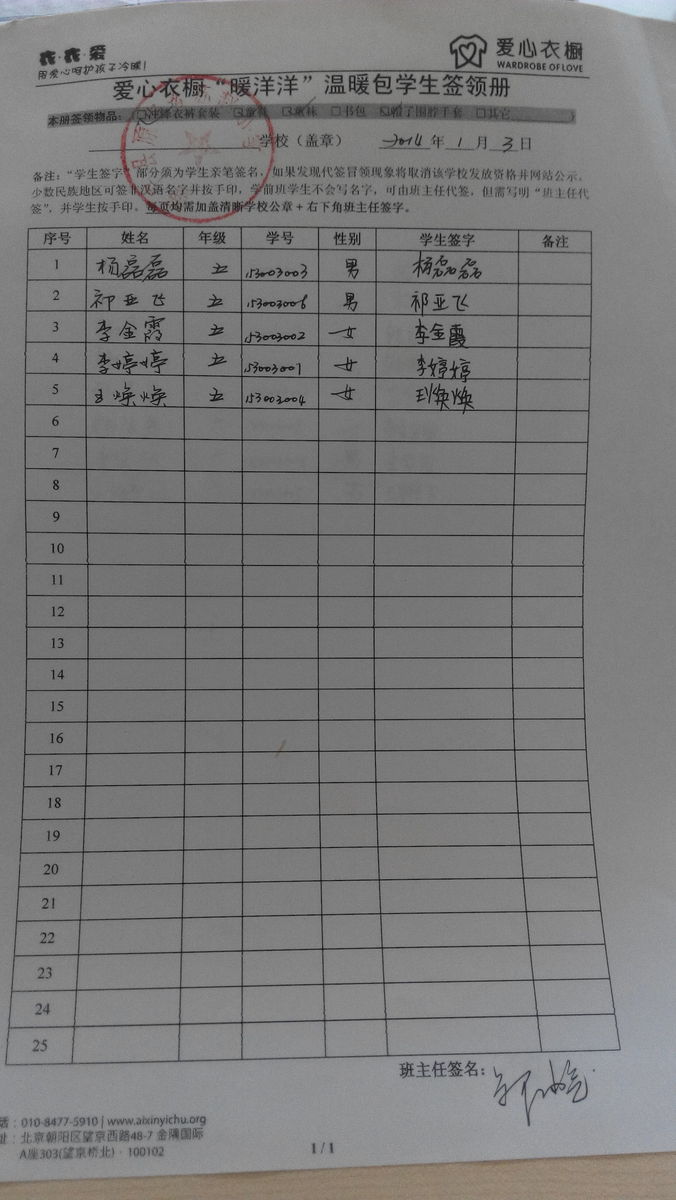 衣·衣·爱
用爱心呵护孩子冷暖!
爱心衣橱
WARDROBE OF LOVE
爱心衣橱“暖洋洋”温暖包学生签领册
本册签领物品: 冲锋衣裤套装 童靴 童袜 书包 帽子围脖手套 其它
学校(盖章) 2014年1月3日
备注:“学生签字”部分须为学生亲笔签名,如果发现代签冒领现象将取消该学校发放资格并网站公示。
少数民族地区可签非汉语名字并按手印,学前班学生不会写名字,可由班主任代签,但需写明“班主任代
签”,并学生按手印。每页均需加盖清晰学校公章+右下角班主任签字。
序号 姓名 年级 学号 性别 学生签字 备注
1 杨磊磊 五 153003003 男 杨磊磊
2 祁亚飞 五 153003006 男 祁亚飞
3 李金霞 五 153003002 女 李金霞
4 李婷婷 五 153003001 女 李婷婷
5 王焕焕 五 153003004 女 王焕焕
6
7
8
9
10
11
12
13
14
15
16
17
18
19
20
21
22
23
24
25
班主任签名:
话:010-8477-5910 | www.aixinyichu.org
址:北京朝阳区望京西路48-7 金隅国际
A座303(望京桥北)·100102
1 / 1